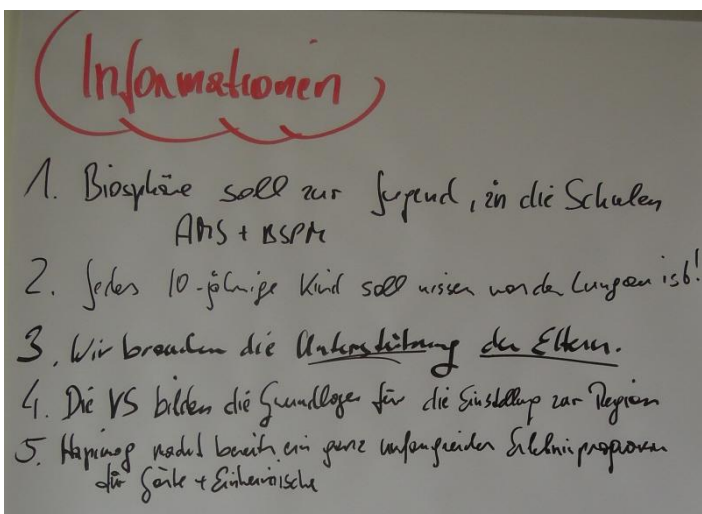 Informationen
1. Biosphäre soll zur Jugend, in die Schulen
AMS + BSPM
2. Jedes 10-jährige Kind soll wissen wo der Lungau ist!
3. Wir brauchen die Unterstützung der Eltern.
4. Die VS bilden die Grundlage für die Einstellung zur Region
5. macht bereits ein ganz umfangreiches Erlebnisprogramm
für Gäste + Einheimische